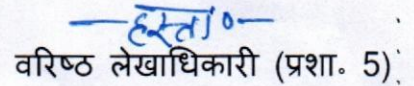 —हस्ता०—
वरिष्ठ लेखाधिकारी (प्रशा. 5)